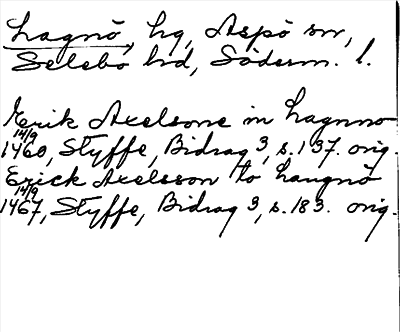 Lagnö, hg, Aspö sn,
Selebo hd, Söderm. l.
Erik Axelsone in Lagnno
14/9
1460, Styffe, Bidrag 3, s. 137. orig.
Erick Axelsson to Laugnö
14/9
1467, Styffe, Bidrag 3, s. 183. orig.